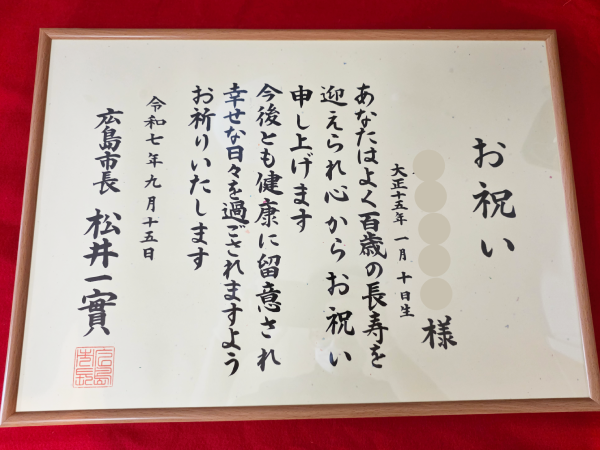 お祝い
様
大正十五年 一月 十日生
あなたはよく百歳の長寿を
迎えられ心からお祝い
申し上げます
今後とも健康に留意され
幸せな日々を過ごされますよう
お祈りいたします
令和七年九月十五日
広島市長 松井一實
広島
市長